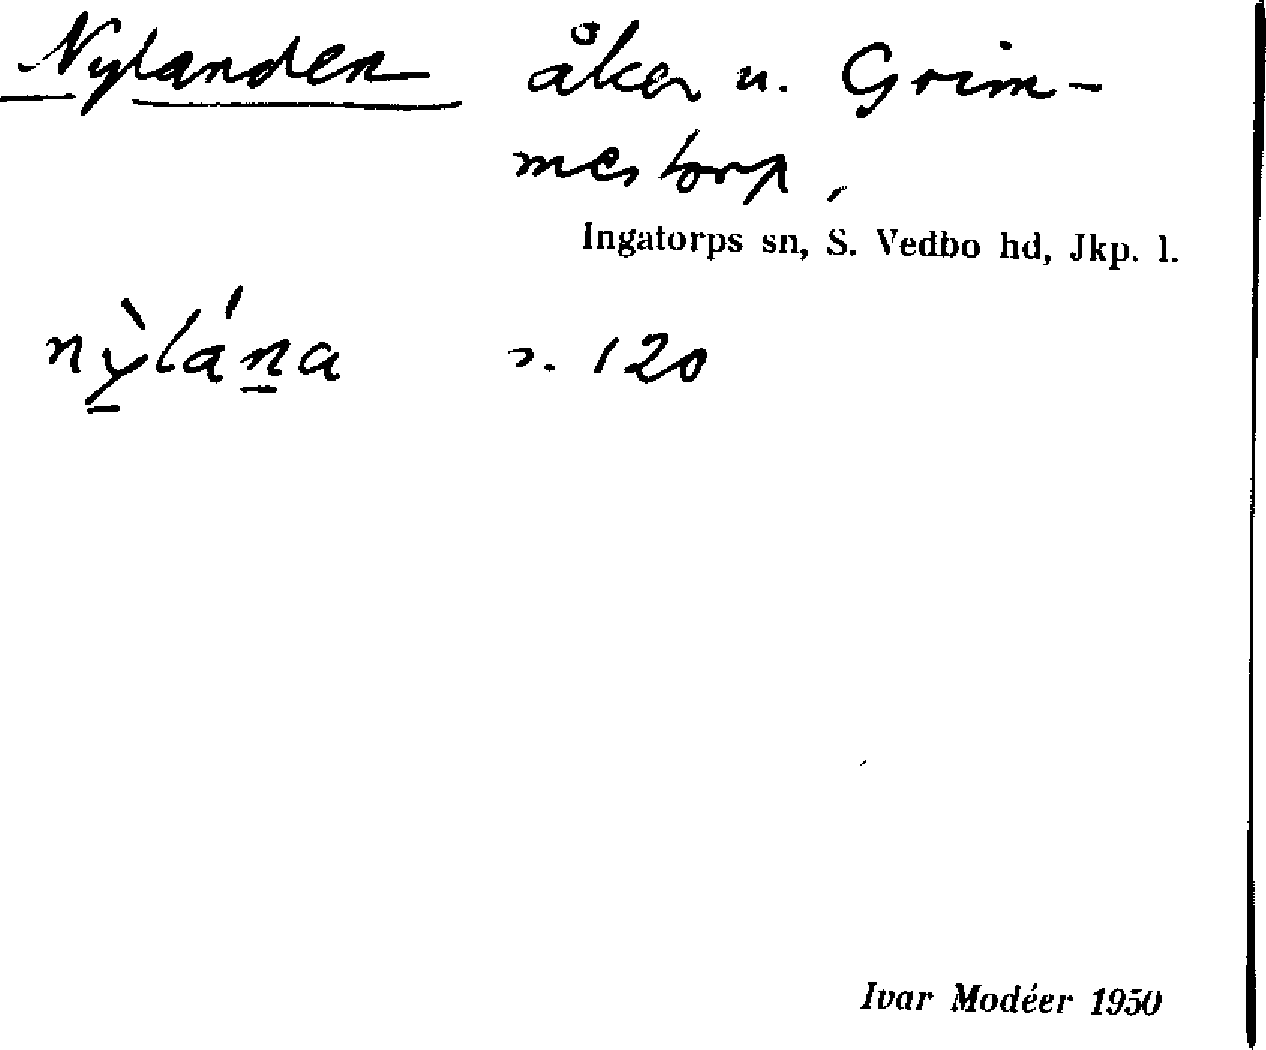 Nylanden åker u. Grim-
mestorp,
Ingatorps sn, S. Vedbo hd, Jkp. l.
nỳ̠lán̠a s. 120
Ivar Modéer 1950